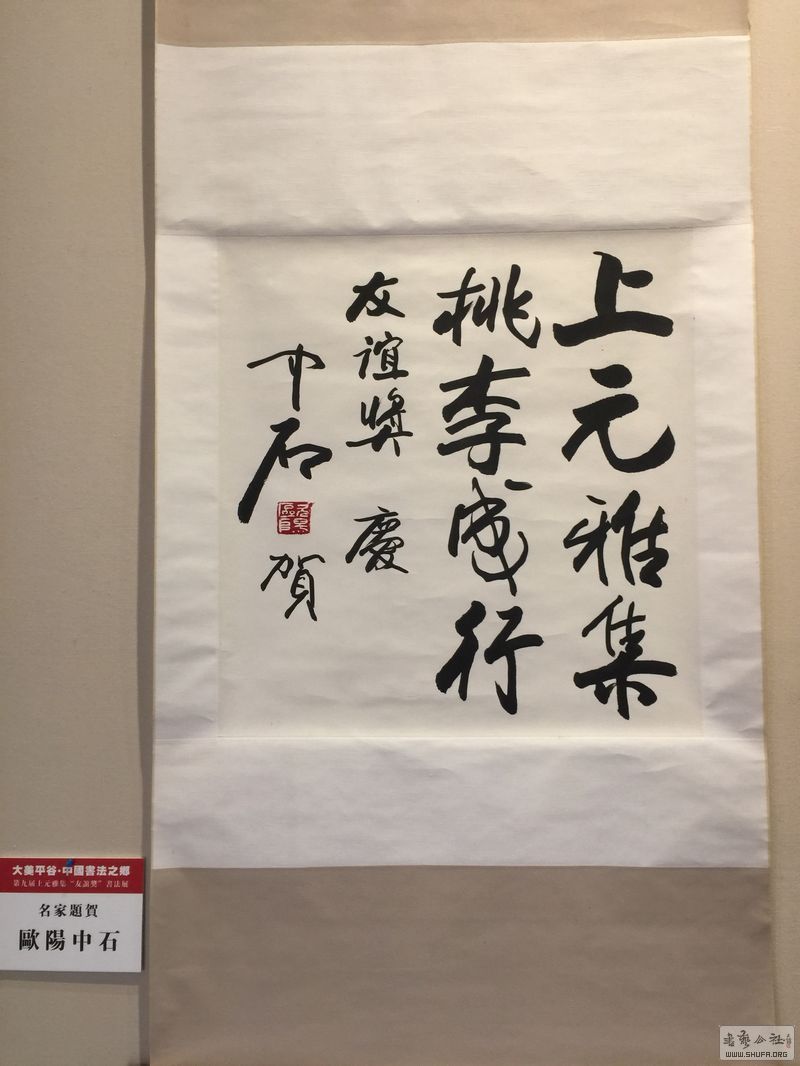 上元雅集
桃李成行
友谊獎 慶
中石 賀
大美平谷·中國書法之鄉
第九届上元雅集“友誼獎”書法展
名家題賀
歐陽中石
WWW.SHUFA.ORG